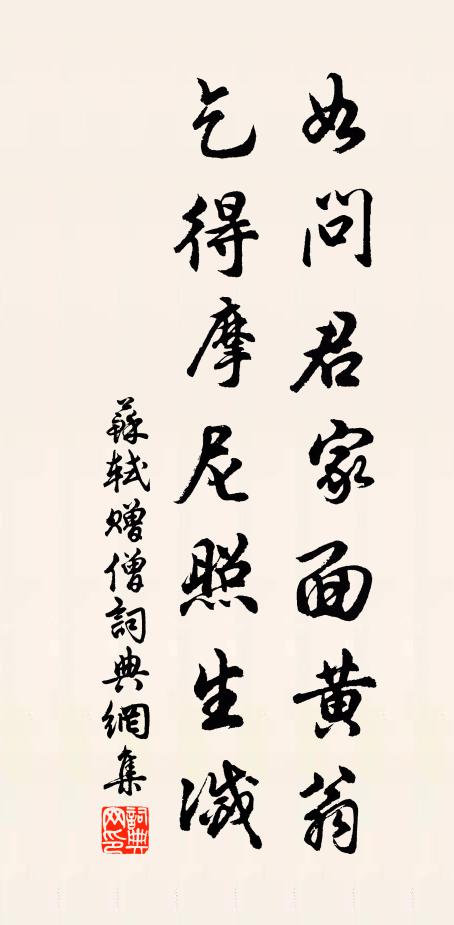 如問君家面黄翁
乞得摩尼照生滅
蘇軾贈僧詞典網集
詞典网印